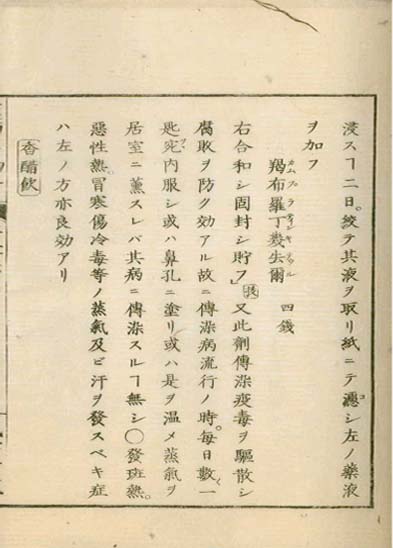 浸スヿ二日。絞テ其液ヲ取リ紙ニテ濾シ左ノ藥液
ヲ加フ
羯布羅丁幾爾 四錢
右合和シ固封シ貯フ」又此劑傳染疫毒ヲ驅散シ
腐敗ヲ防ク効アル故ニ傳染病流行ノ時。每日數〻一
匙宛内服シ或ハ鼻孔ニ塗リ或ハ是ヲ温メ蒸氣ヲ
居室ニ薫スレバ其病ニ傳染スルヿ無シ〇發斑熱。
惡性熱。冐寒傷冷毒等ノ蒸氣及ビ汗ヲ發スベキ症
ハ左ノ方亦良効アリ
香醋飲